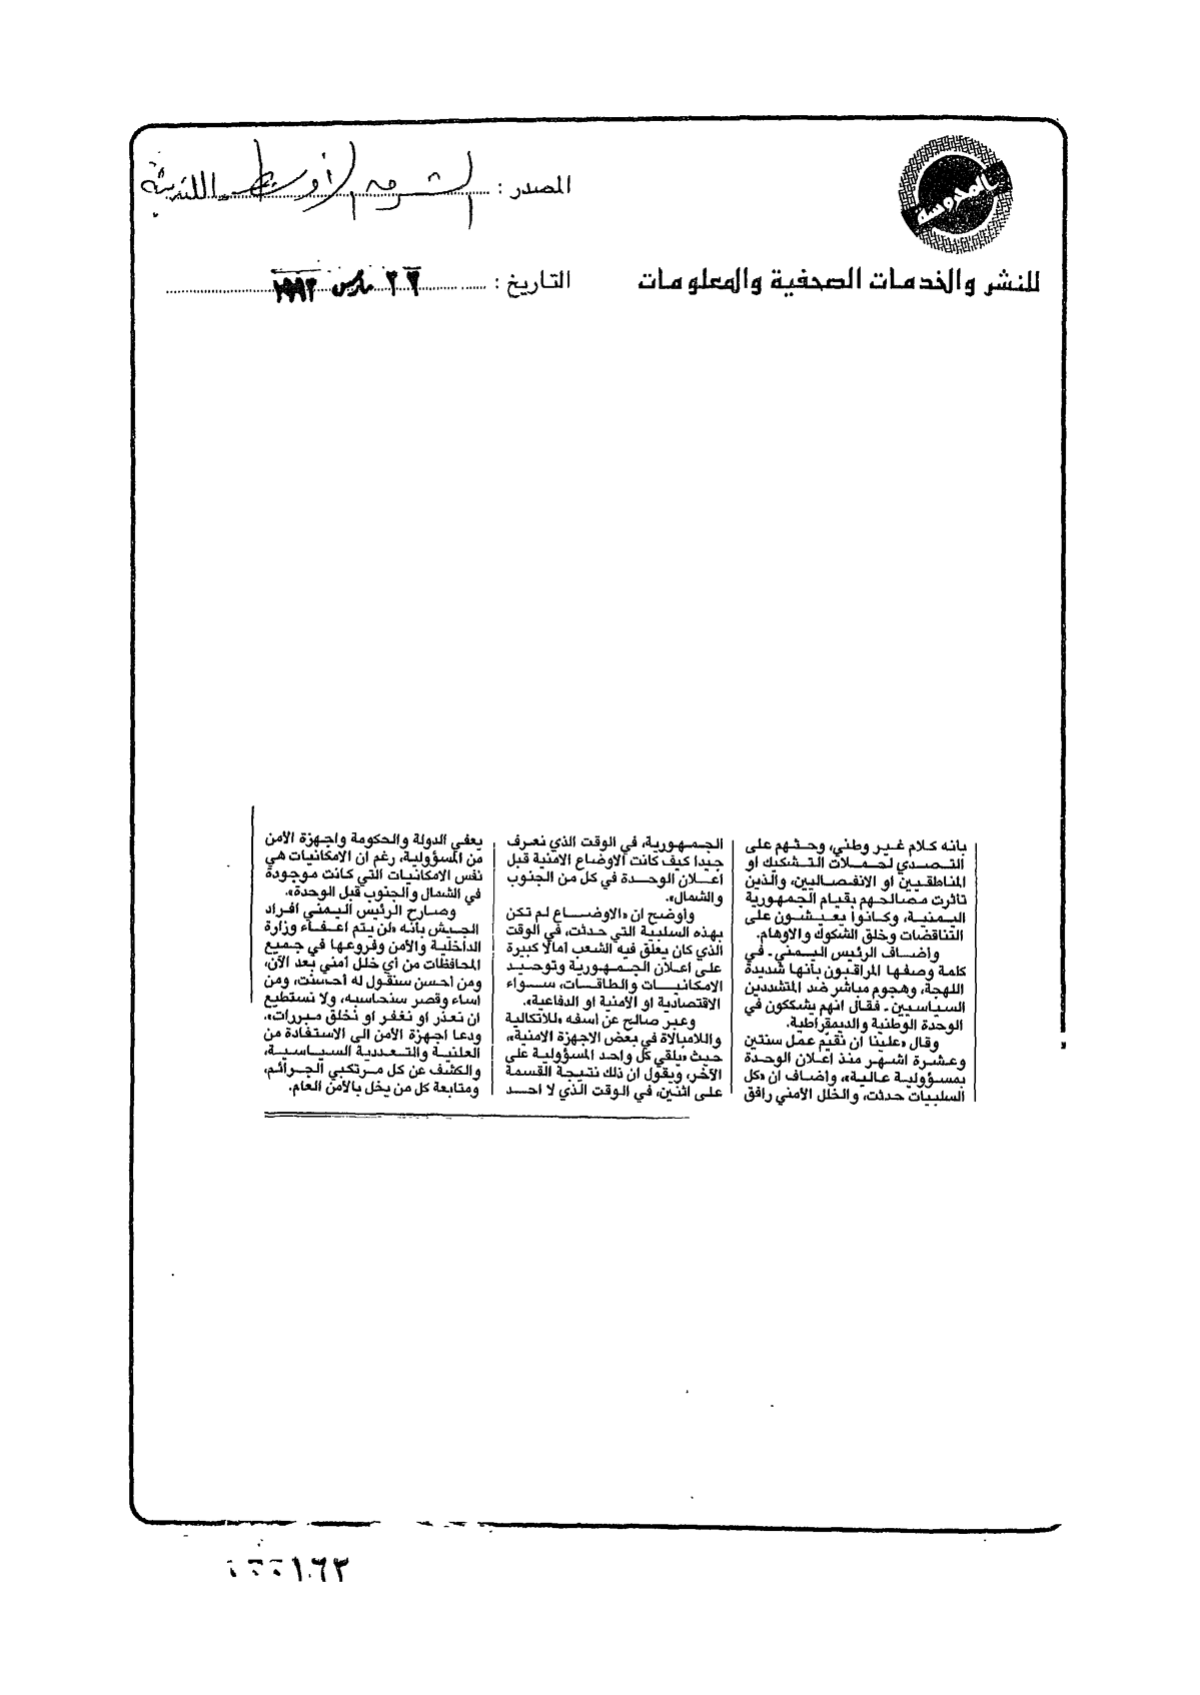 المصدر : الشرق الأوسط اللندنية
المدروسة
للنشر والخدمات الصحفية والمعلومات
التاريخ : ٢٢ مارس ١٩٩٣
بانه كلام غير وطني، وحثهم على
التصدي لحملات التشكيك او
المناطقيين او الانفصاليين، والذين
تاثرت مصالحهم بقيام الجمهورية
اليمنية، وكانوا يعيشون على
التناقضات وخلق الشكوك والاوهام.
واضاف الرئيس اليمني - في
كلمة وصفها المراقبون بأنها شديدة
اللهجة، وهجوم مباشر ضد المتشددين
السياسيين - فقال انهم يشككون في
الوحدة الوطنية والديمقراطية.
وقال «علينا ان نقيّم عمل سنتين
وعشرة اشهر منذ اعلان الوحدة
بمسؤولية عالية»، واضاف ان «كل
السلبيات حدثت، والخلل الأمني رافق
الجمهورية، في الوقت الذي نعرف
جيدا كيف كانت الاوضاع الامنية قبل
اعلان الوحدة في كل من الجنوب
والشمال».
واوضح ان «الاوضاع لم تكن
بهذه السلبية التي حدثت، في الوقت
الذي كان يعلق فيه الشعب آمالا كبيرة
على اعلان الجمهورية وتوحيد
الامكانيات والطاقات، سواء
الاقتصادية او الأمنية او الدفاعية».
وعبر صالح عن اسفه «للاتكالية
واللامبالاة في بعض الاجهزة الامنية»،
حيث «يلقي كل واحد المسؤولية على
الآخر، ويقول ان ذلك نتيجة القسمة
على اثنين، في الوقت الذي لا احد
يعفي الدولة والحكومة واجهزة الأمن
من المسؤولية، رغم ان الامكانيات هي
نفس الامكانيات التي كانت موجودة
في الشمال والجنوب قبل الوحدة».
وصارح الرئيس اليمني افراد
الجيش بأنه «لن يتم اعفاء وزارة
الداخلية والأمن وفروعها في جميع
المحافظات من أي خلل أمني بعد الآن،
ومن احسن سنقول له أحسنت، ومن
اساء وقصر سنحاسبه، ولا نستطيع
ان نعذر او نغفر او نخلق مبررات».
ودعا اجهزة الأمن الى الاستفادة من
العلنية والتعددية السياسية،
والكشف عن كل مرتكبي الجرائم،
ومتابعة كل من يخل بالأمن العام.